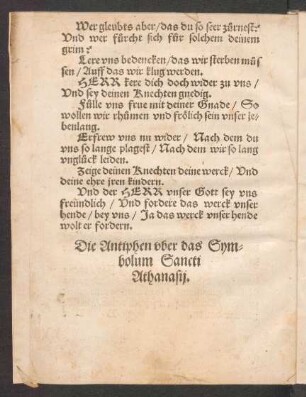 Wer gleubts aber/das du so seer zürnest?
Vnd wer fürcht sich für solchem deinem
grim?
Lere vns bedencken/das wir sterben müs
sen/Auff das wir klug werden.
HERR kere dich doch wider zu vns/
Vnd sey deinen Knechten gnedig.
Fülle vns frue mit deiner Gnade/So
wollen wir rhümen vnd frölich sein vnser le
benlang.
Erfrew vns nu wider/Nach dem du
vns so lange plagest/Nach dem wir so lang
vnglück leiden.
Zeige deinen Knechten deine werck/Vnd
deine ehre jren kindern.
Vnd der HERR vnser Gott sey vns
freündlich/Vnd fordere das werck vnser
hende/bey vns/Ja das werck vnser hende
wolt er fordern.
Die Antiphen vber das Sym-
bolum Sancti
Athanasij.